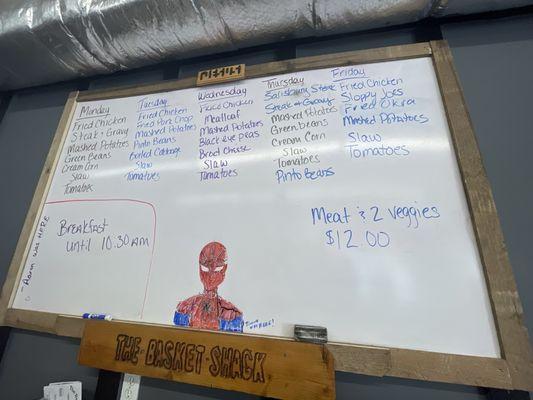 MENU
Monday
Fried Chicken
Steak & Gravy
Mashed Potatoes
Green Beans
Cream Corn
Slaw
Tomatoes
Tuesday
Fried Chicken
Fried Pork Chop
Mashed Potatoes
Pinto Beans
Boiled Cabbage
Slaw
Tomatoes
Wednesday
Fried Chicken
Meatloaf
Mashed Potatoes
Black eye Peas
Slaw
Tomatoes
Thursday
Salisbury Steak
Steak & Gravy
Mashed Potatoes
Green beans
Cream Corn
Slaw
Tomatoes
Pinto Beans
Friday
Fried Chicken
Sloppy Joes
Fried Okra
Mashed Potatoes
Slaw
Tomatoes
Breakfast
Until 10:30 AM
Meat & 2 Veggies
$12.00
- Aaron was HERE
THE-BASKET-SHACK